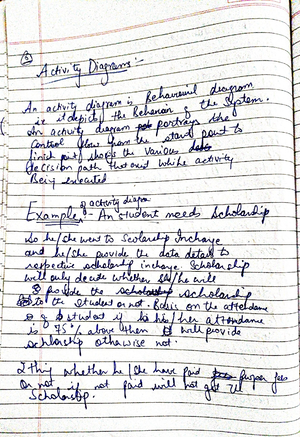 5
Activity Diagrams :-
An activity diagram is Behavioural diagram
ie it depict the Behavior of the System.
An activity diagram portrays the
control flow from the start point to
finish point shows the various
decision path that exist while activity
Being executed
of activity diagram
Example - An student needs Scholarship
So he/she went to Scolarship Incharge
and he/she provide the data details to
respective scholarship incharge Scholarship
will only decide whether he/she will
provide the scholarship
to the Student or not Basis on the attendance
of student if his/her attendance
is 75% above then will provide
scholarship otherwise not.
2 thing whether he/she have paid proper fees
or not if not paid will not get the
Scholarship.